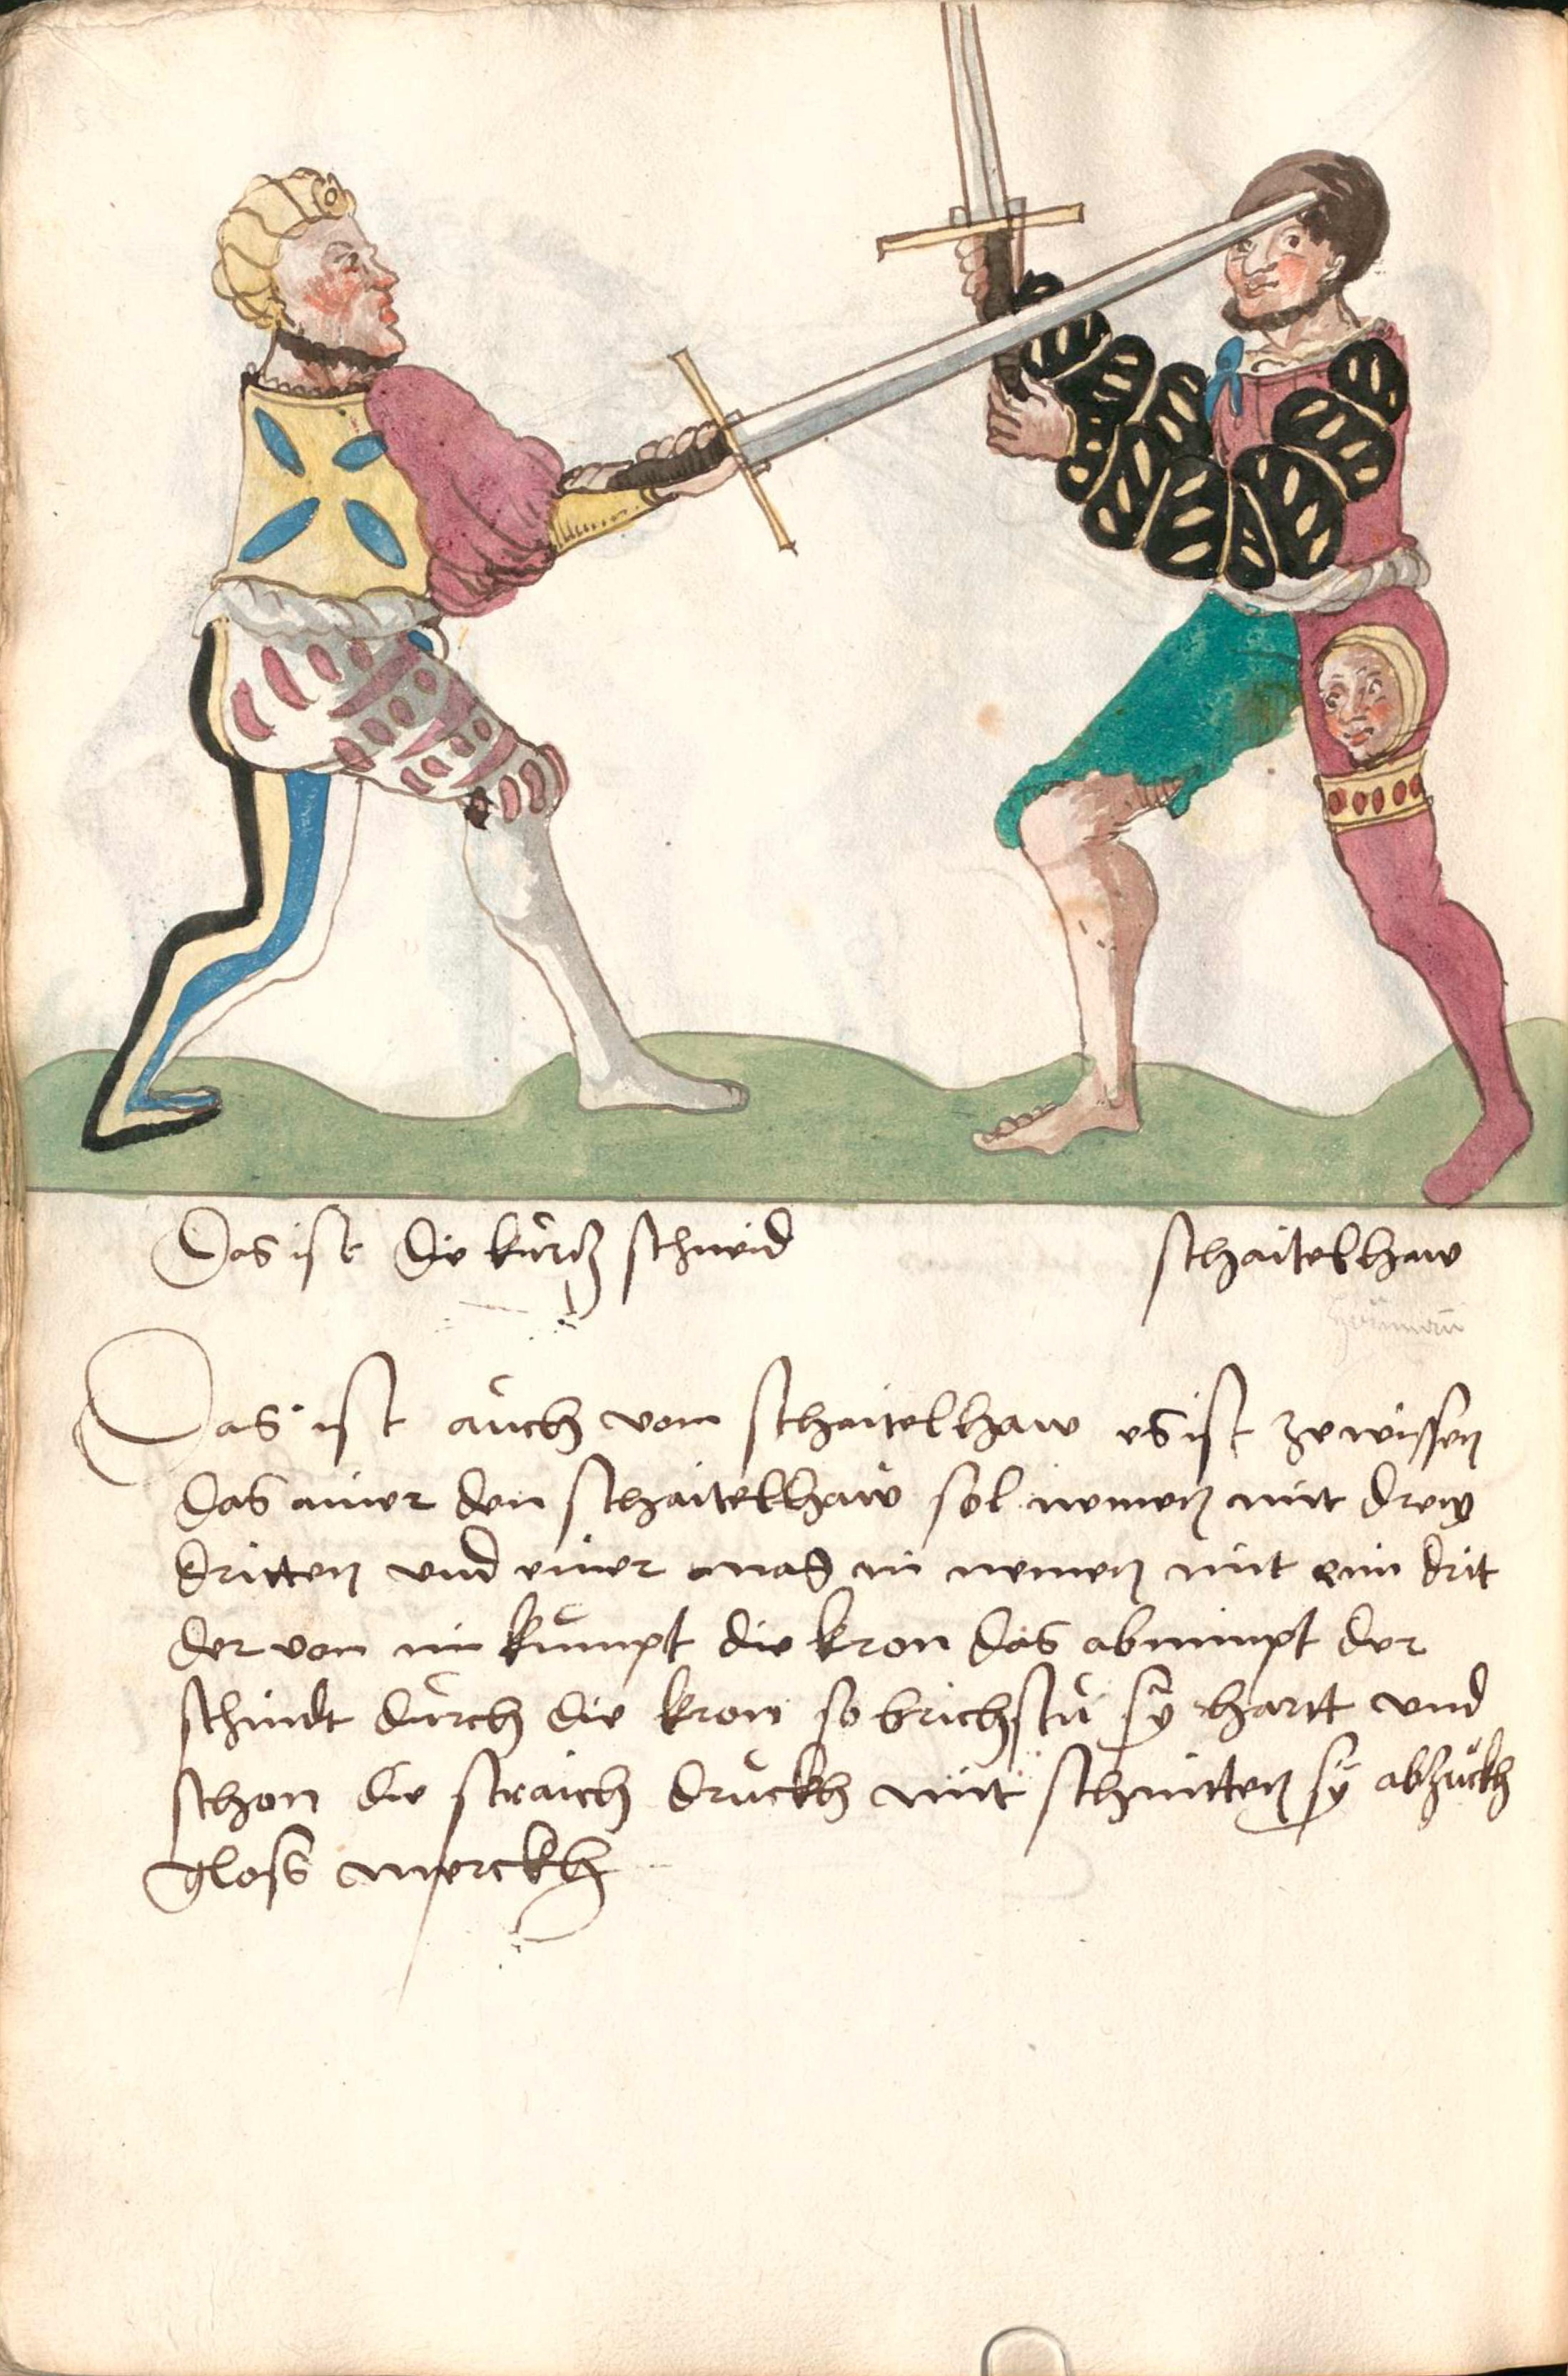 Das ist die kürcz schneid
schaitelhaw
Das ist auch vom schaitelhaw es ist ze wissen
das ainer den schaitelhaw sol nemen mit drey
dritten und einer mag in nemen mit eim drit
der von im kumpt die kron das abnimpt der
schindt durch die kron so brichstu sy hartt und
schon die straich druckh mit schnitten sy abzuckh
gloss merckh